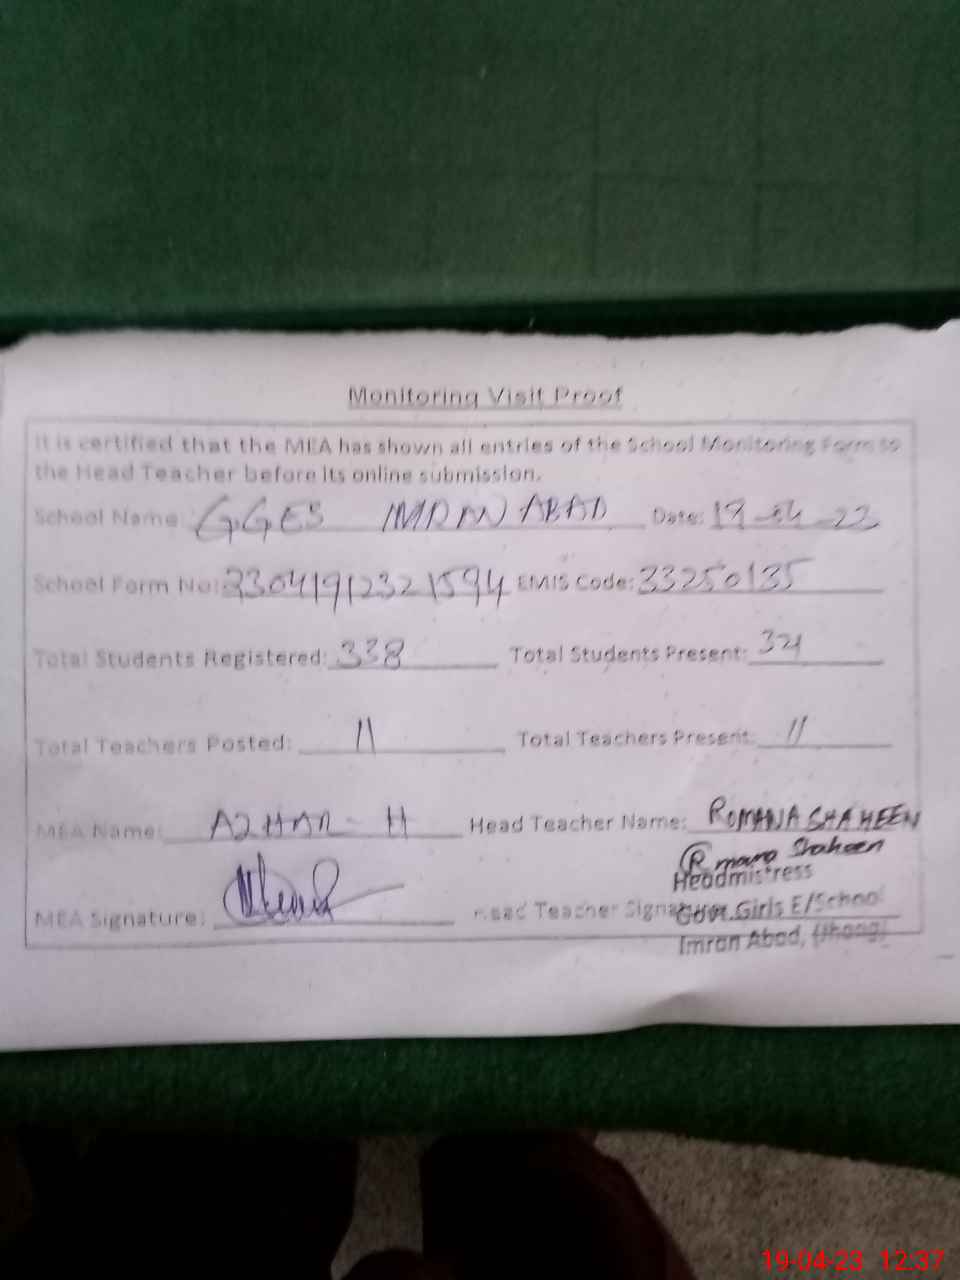 Monitoring Visit Proof
It is certified that the MEA has shown all entries of the School Monitoring Form to
the Head Teacher before its online submission.
School Name: GGES IMRAN ABAD Date: 19-04-23
School Form No: 33041912321594 EMIS Code: 33250135
Total Students Registered: 338 Total Students Present: 321
Total Teachers Posted: 11 Total Teachers Present: 11
MEA Name: AZHAR - H Head Teacher Name: ROMANA SHAHEEN
Romana Shaheen
Headmistress
MEA Signature: Head Teacher Signature: Govt. Girls E/School
Imran Abad, (Jhang)
19-04-23 12:37